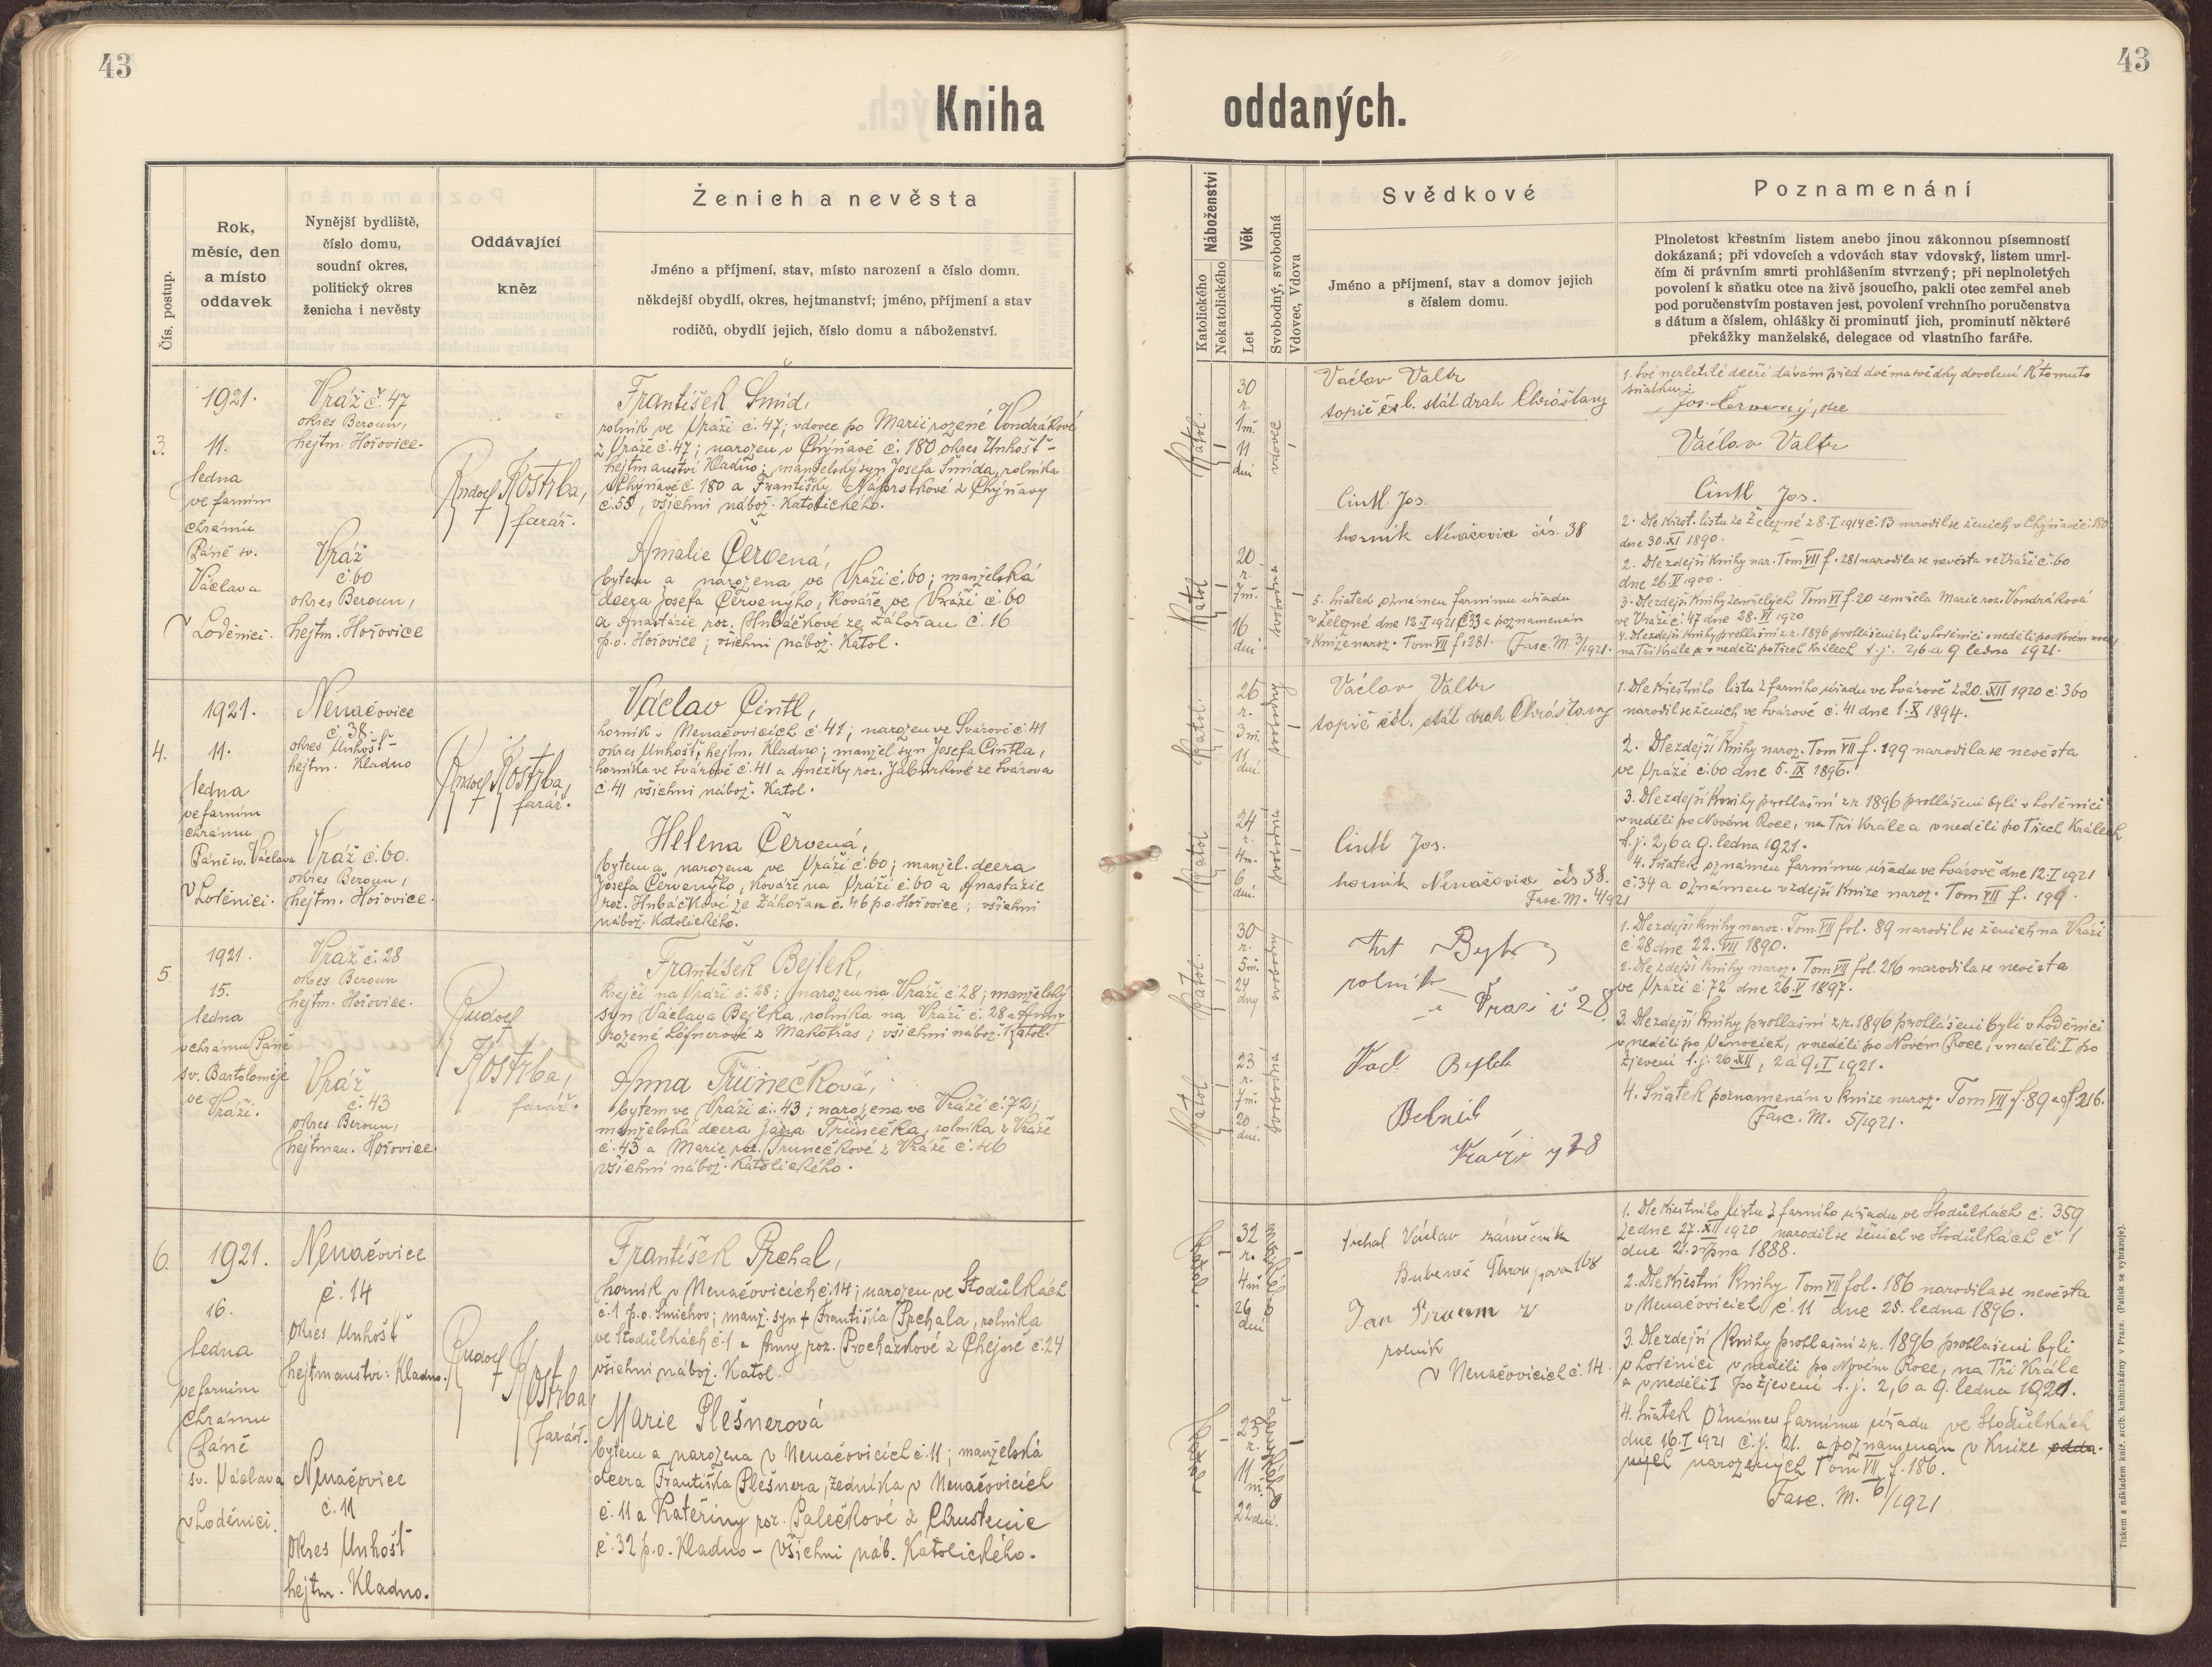 43
43
Kniha oddaných.
Čís. postup.
Rok,
měsíc, den
a místo
oddavek
Nynější bydliště,
číslo domu,
soudní okres,
politický okres
ženicha i nevěsty
Oddávající
kněz
Ženich a nevěsta
Jméno a příjmení, stav, místo narození a číslo domu.
někdejší obydlí, okres, hejtmanství; jméno, příjmení a stav
rodičů, obydlí jejich, číslo domu a náboženství.
Náboženství
Katolického
Nekatolického
Věk
Let
Svobodný, svobodná
Vdovec, Vdova
Svědkové
Jméno a příjmení, stav a domov jejich
s číslem domu.
Poznamenání
Plnoletost křestním listem anebo jinou zákonnou písemností
dokázaná; při vdovcích a vdovách stav vdovský, listem umrl-
čím či právním smrti prohlášením stvrzený; při neplnoletých
povolení k sňatku otce na živě jsoucího, pakli otec zemřel aneb
pod poručenstvím postaven jest, povolení vrchního poručenstva
s dátum a číslem, ohlášky či prominutí jich, prominutí některé
překážky manželské, delegace od vlastního faráře.
3.
1921.
11.
ledna
ve farním
chrámu
Páně sv.
Václava
v Loděnici.
Vráž č. 47
okres Beroun,
hejtm. Hořovice.
Vráž
č. 60
okres Beroun,
hejtm. Hořovice
Rudolf Kostrba,
farář.
František Šmíd,
rolník ve Vráži č. 47; vdovec po Marii rozené Vondrákové
z Vráže č. 47; narozen v Chýňavě č. 180 okres Unhošť-
hejtmanství Kladno; manželský syn Josefa Šmída, rolníka
v Chýňavě č. 180 a Františky Náprstkové z Chýňavy
č. 55, všichni nábož. Katolického.
Amalie Červená,
bytem a narozena ve Vráži č. 60; manželská
dcera Josefa Červenýho, Kováře ve Vráži č. 60
a Anastazie roz. Hrbáčkové ze Záhořan č. 16
p.o. Hořovice; všichni nábož. Katol.
Katol.
30
r.
1 m.
11
dní
vdovec
Katol.
20
r.
7 m.
16
dní
svobodná
Václav Valtr
topič čsl. stát drah Chrášťany
Cintl Jos.
horník Nenačovice čís. 38
5. Sňatek oznámen farnímu úřadu
v Železné dne 12.I 1921 č. 33 a poznamenán
v Knize naroz. Tom VII f. 281. Fasc. M. 3/1921.
1. Své nezletilé dceři dávám před dvěma svědky dovolení K tomuto
sňatku:
Jos. Červený, otec
Václav Valtr
Cintl Jos.
2. Dle Křest. listu ze Železné z 8.I 1914 č. 13 narodil se ženich v Chýňavě č. 180
dne 30.XI 1890.
2. Dle zdejší Knihy nar. Tom VII f. 281 narodila se nevěsta ve Vráži č. 60
dne 26.V 1900.
3. Dle zdejší Knihy zemřelých Tom VI f. 20 zemřela Marie roz. Vondráková
ve Vráži č. 47 dne 28.VI 1920
4. Dle zdejší Knihy prohlášní z r. 1896 prohlášeni byli v Loděnici v neděli po Novém roce,
na Tři Krále a v neděli po Třech Králech t.j. 2, 6 a 9 ledna 1921.
4.
1921.
11.
ledna
ve farním
chrámu
Páně sv. Václava
v Loděnici.
Nenačovice
č. 38.
okres Unhošť-
hejtm. Kladno
Vráž č. 60.
okres Beroun,
hejtm. Hořovice.
Rudolf Kostrba,
farář.
Václav Cintl,
horník v Nenačovicích č. 41; narozen ve Svárově č. 41
okres Unhošť, hejtm. Kladno; manžel. syn Josefa Cintla,
horníka ve Svárově č. 41 a Anežky roz. Jaburkové ze Svárova
č. 41 všichni nábož. Katol.
Helena Červená,
bytem a narozena ve Vráži č. 60; manžel. dcera
Josefa Červenýho, Kováře na Vráži č. 60 a Anastazie
roz. Hrbáčkové ze Záhořan č. 46 p.o. Hořovice; všichni
nábož. Katolického.
Katol.
26
r.
3 m.
11
dní.
svobodný
Katol
24
r.
4 m.
6
dní.
svobodná
Václav Valtr
topič čsl. stát drah Chrášťany
Cintl Jos.
horník Nenačovice čís 38.
Fasc. M. 4/1921
1. Dle Křestního listu z farního úřadu ve Svárově z 20.XII 1920 č. 360
narodil se ženich ve Svárově č. 41 dne 1.X 1894.
2. Dle zdejší Knihy naroz. Tom VII f. 199 narodila se nevěsta
ve Vráži č. 60 dne 5.IX 1896.
3. Dle zdejší Knihy prohlašní z r. 1896 prohlášeni byli v Loděnici
v neděli po Novém Roce, na Tři Krále a v neděli po Třech Králech
t.j. 2, 6 a 9. ledna 1921.
4. Sňatek oznámen farnímu úřadu ve Svárově dne 12.I 1921
č. 34 a oznámen v zdejší Knize naroz. Tom VII f. 199.
5.
1921.
15.
ledna
v chrámu Páně
sv. Bartoloměje
ve Vráži.
Vráž č. 28
okres Beroun
hejtm. Hořovice.
Vráž
č. 43
okres Beroun,
hejtman. Hořovice.
Rudolf
Kostrba,
farář.
František Bejlek,
Krejčí na Vráži č. 28; narozen na Vráži č. 28; manželský
syn Václava Bejlka, rolníka na Vráži č. 28 a Anny
rozené Lófnerové z Makotřas; všichni nábož. Katol.
Anna Trunečková,
bytem ve Vráži č. 43; narozena ve Vráži č. 72;
manželská dcera Jana Trunečka, rolníka z Vráže
č. 43 a Marie roz. Trunečkové z Vráže č. 46
všichni nábož. Katolického.
Katol.
30
r.
5 m.
24
dny
svobodný
Katol
23
r.
7 m.
20
dní.
svobodná
rolník
28
Václ. Bejlek
28
1. Dle zdejší knihy naroz. Tom. VII fol. 89 narodil se ženich na Vráži
č. 28 dne 22.VII 1890.
2. Dle zdejší Knihy naroz. Tom VII fol. 216 narodila se nevěsta
ve Vráži č. 72 dne 26.V 1897.
3. Dle zdejší Knihy prohlašní z r. 1896 prohlášeni byli v Loděnici
v neděli po Vánocích, v neděli po Novém Roce, v neděli I po
Zjevení t.j. 26.XII, 2 a 9.I 1921.
4. Sňatek poznamenán v Knize naroz. Tom VII f. 89 a f 216.
Fasc. M. 5/1921.
6.
1921.
16.
ledna
ve farním
chrámu
Páně
sv. Václava
v Loděnici.
Nenačovice
č. 14
okres Unhošť
hejtmanství: Kladno.
Nenačovice
č. 11
okres Unhošť
hejtm. Kladno.
Rudolf
Kostrba
farář.
František Prchal,
horník v Nenačovicích č. 14; narozen ve Stodůlkách
č. 1 p.o. Smíchov; manž. syn + Františka Prchala, rolníka
ve Stodůlkách č. 1 a Anny roz. Procházkové z Chejně č. 24
všichni nábož. Katol.
Marie Plešnerová
bytem a narozena v Nenačovicích č. 11; manželská
dcera Františka Plešnera, zedníka v Nenačovicích
č. 11 a Kateřiny roz. Palečkové z Chrustenic
č. 32 p.o. Kladno - všichni náb. Katolického.
32
r.
4 m
26
dní
25
r.
11
m.
22 dní.
Prchal Václav zámečník
Bubeneč 168
Jan
rolník
v Nenačovicích č. 14.
1. Dle Křestního listu z farního úřadu ve Stodůlkách č. 359
ze dne 27.XII 1920 narodil se ženich ve Stodůlkách č 1
dne 21. srpna 1888.
2. Dle Křestní Knihy Tom VII fol. 186 narodila se nevěsta
v Nenačovicích č. 11 dne 25. ledna 1896.
3. Dle zdejší Knihy prohlašní z r. 1896 prohlášeni byli
v Loděnici v neděli po Novém Roce, na Tři Krále
a v neděli I po Zjevení t.j. 2, 6 a 9. ledna 1921.
4. Sňatek oznámen farnímu úřadu ve Stodůlkách
dne 16.I 1921 č.j. 21. a poznamenán v Knize odda-
ných narozených Tom VII f. 186.
Fasc. M. 6/1921
Tiskem a nákladem kníž. arcib. knihtiskárny v Praze. (Patisk se vyhrazuje).